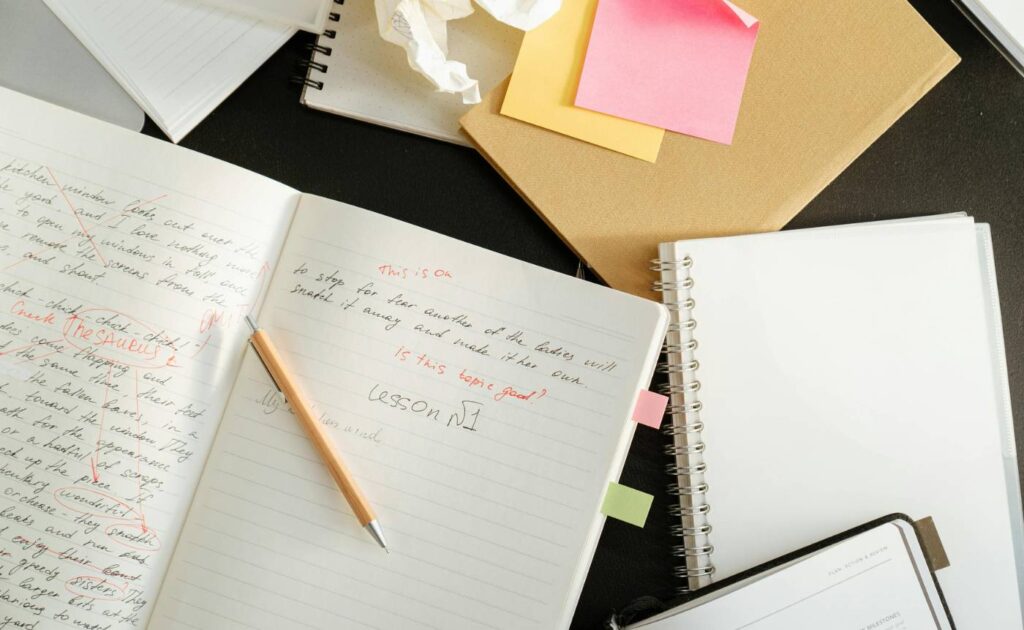 kitchen window looks out over the
yard - and I love nothing more
to open my windows in fall once
remove the screens from the
and shout.
chick-chick-chick-chick!
Check Thesaurus
come flapping and
the same time, their feet
the fallen leaves, in a
toward the window. They
for the appearance
or a handful of scraps.
up the piece if
wonderful
or cheese - they snatch
and run
enjoy their
greedy sisters. They
larger bits at the
to watch
yard
This is OK
to stop for fear another of the ladies will
snatch it away and make it her own.
Is this topic good?
Lesson №1
PLAN, ACTION & REVIEW
MILESTONES